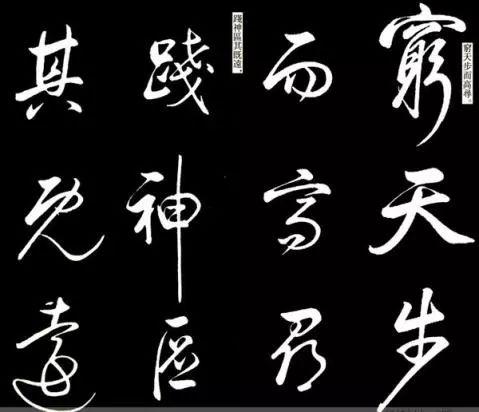 窮天步而高尋。
窮天步
而高尋
踐神區其既遠。
踐神區
其既遠